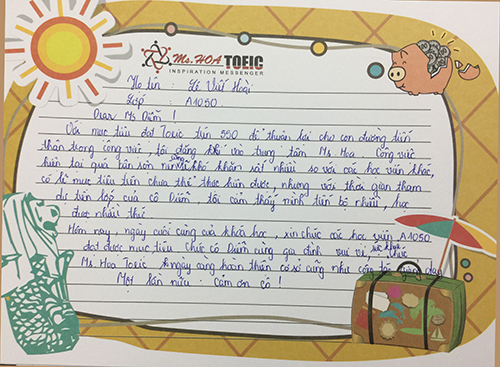 Ms. HOA TOEIC
INSPIRATION MESSENGER
Họ tên : Lê Viết Hoài
Lớp : A1050
Dear Ms Diễm !
Với mục tiêu đạt Toeic trên 550 để thuận lợi cho con đường tiến
thân trong công việc, tôi đăng ký vào trung tâm Ms Hoa. Công việc
hiện tại quá bận rộn nên cũng khó khăn rất nhiều so với các học viên khác,
có lẽ mục tiêu trên chưa thể thực hiện được, nhưng với thời gian tham
dự trên lớp của cô Diễm, tôi cảm thấy mình tiến bộ nhiều, học
được nhiều thứ.
Hôm nay, ngày cuối cùng của khóa học, xin chúc các học viên A1050
đạt được mục tiêu. Chúc cô Diễm cùng gia đình vui vẻ, sức khỏe. Chúc
Ms Hoa Toeic ngày càng hoàn thiện cơ sở cũng như công tác giảng dạy
Một lần nữa . Cảm ơn cô !